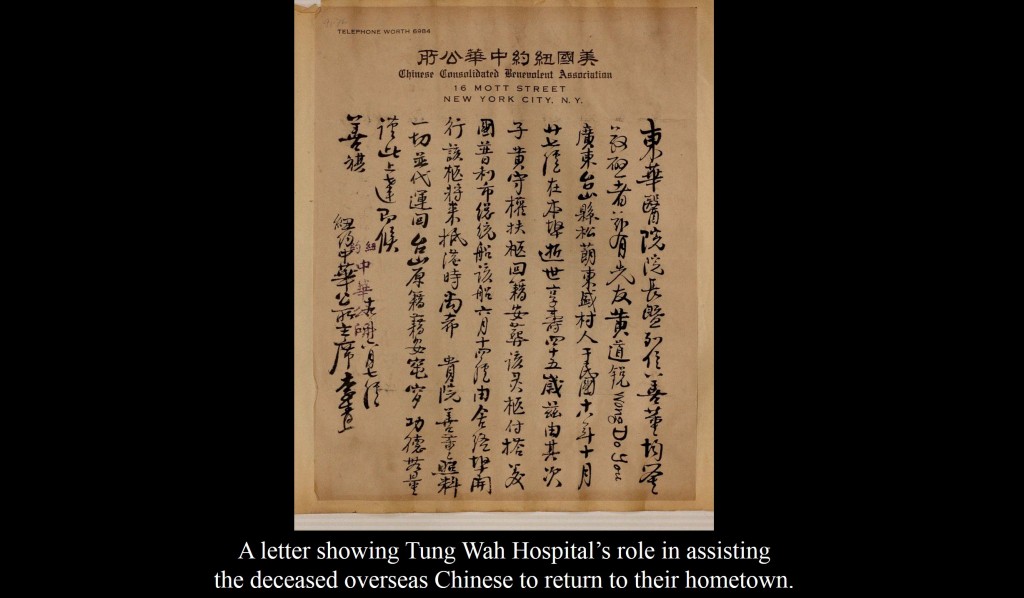 TELEPHONE WORTH 6884
美國紐約中華公所
Chinese Consolidated Benevolent Association
16 MOTT STREET
NEW YORK CITY, N. Y.
東華醫院院長暨列位善董均鑒
敬啟者茲有先友黃道銳 Wong Do You
廣東台山縣松蓢東盛村人于民國十八年十月
廿七號在本埠逝世享壽四十五歲茲由其次
子黃守權扶柩回籍安葬該灵柩付搭美
國利布總統船該船六月十四號由舍路埠開
行該柩將來抵港時尚希 貴院善董照料
一切並代運回台山原籍藉安窀穸功德無量
謹此上達即候
善祺
六月七號
紐約中華公所
紐約中華公所主席李上
A letter showing Tung Wah Hospital’s role in assisting
the deceased overseas Chinese to return to their hometown.